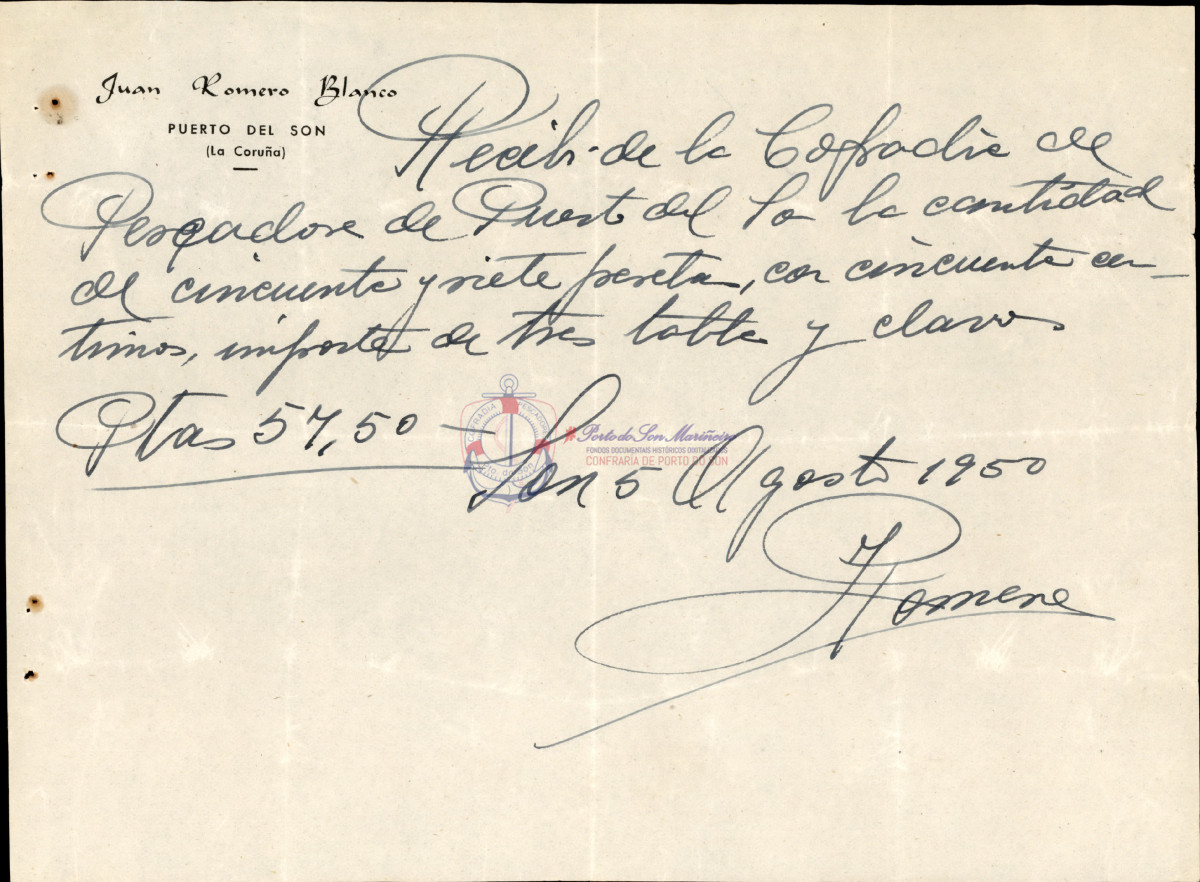 Juan Romero Blanco
PUERTO DEL SON
(La Coruña)
Recibi de la Cofradia de
Pescadores de Puerto del Son la cantidad
de cincuenta y siete pesetas, con cincuenta cen-
timos, importe de tres tabla y clavos
Ptas 57,50 -
Son 5 Agosto 1950
Romero
COFRADIA PESCADORES
Pto. do Son
Porto do Son Mariñeiro
FONDOS DOCUMENTAIS HISTÓRICOS DIXITALIZADOS
CONFRARÍA DE PORTO DO SON